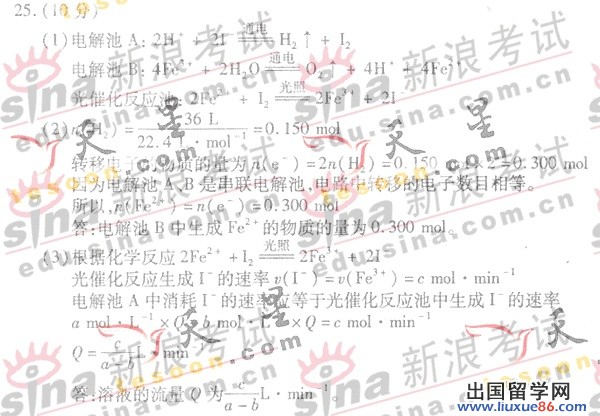 25.(10分)
(1)电解池 A: 2H⁺ + 2I⁻ 通电 H₂↑ + I₂
电解池 B: 4Fe³⁺ + 2H₂O 通电 O₂↑ + 4H⁺ + 4Fe²⁺
光催化反应池: 2Fe²⁺ + I₂ 光照 2Fe³⁺ + 2I⁻
(2)n(H₂) = 36 L / 22.4 L · mol⁻¹ = 0.150 mol
转移电子的物质的量为 n(e⁻) = 2n(H₂) = 0.150 mol × 2 = 0.300 mol
因为电解池 A、B 是串联电解池,电路中转移的电子数目相等。
所以,n(Fe²⁺) = n(e⁻) = 0.300 mol
答:电解池 B 中生成 Fe²⁺ 的物质的量为 0.300 mol。
(3)根据化学反应 2Fe²⁺ + I₂ 光照 2Fe³⁺ + 2I⁻
光催化反应生成 I⁻ 的速率 v(I⁻) = v(Fe³⁺) = c mol · min⁻¹
电解池 A 中消耗 I⁻ 的速率应等于光催化反应池中生成 I⁻ 的速率
a mol · L⁻¹ × Q - b mol · L⁻¹ × Q = c mol · min⁻¹
Q = c / a - b L · min⁻¹
答:溶液的流量 Q 为 c / a - b L · min⁻¹。
新浪考试
sina
edu.sina.com.cn
天星
tesoon.com
出国留学网
www.liuxue86.com